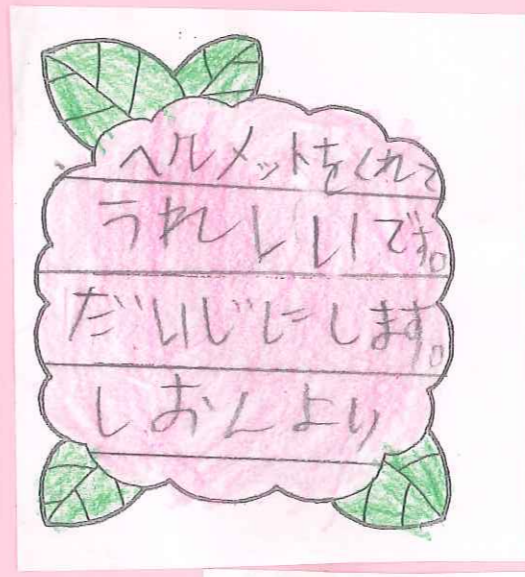 ヘルメットをくれて
うれしいです。
だいじにします。
しおんより